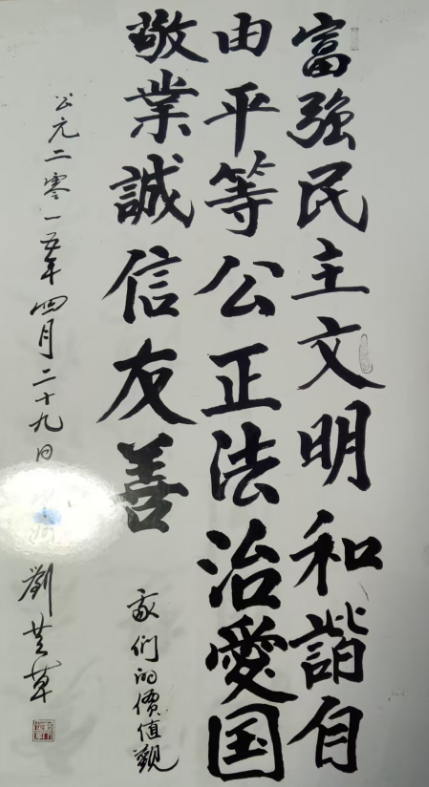 富強民主文明和諧自
由平等公正法治愛国
敬業誠信友善
我們的價值觀
公元二零一五年四月二十九日
劉芝草